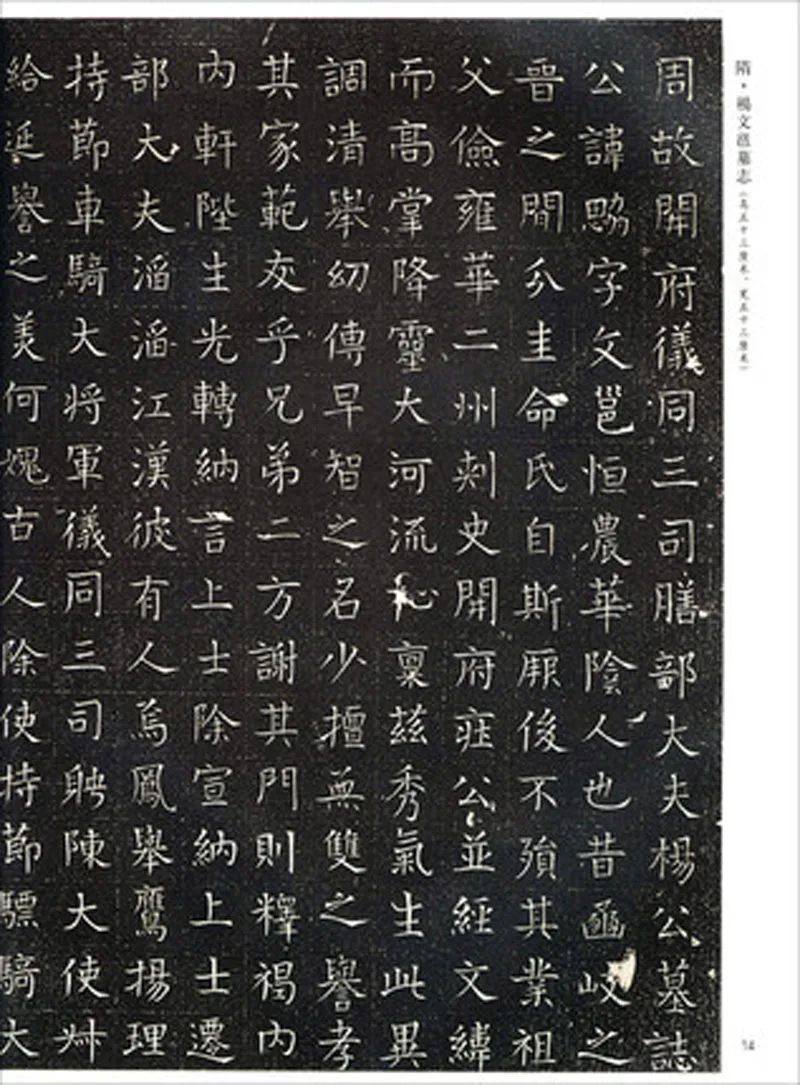 隋·楊文墓志（高五十三厘米，寬五十三厘米）
周故開府儀同三司膳部大夫楊公墓誌
公諱字文邕恒農華陰人也昔豳岐之
晉之間分圭命氏自斯厥後不殞其業祖
父儉雍華二州刺史開府莊公並經文緯
而高掌降靈大河流祉稟茲秀氣生此異
調清舉幼傳早智之名少擅無雙之譽孝
其家範友乎兄弟二方謝其門則釋褐內
內軒陛生光轉納言上士除宣納上士遷
部大夫滔滔江漢彼有人焉鳳舉鷹揚理
持節車騎大將軍儀同三司聘陳大使艸
給延譽之美何媿古人除使持節驃騎大
14